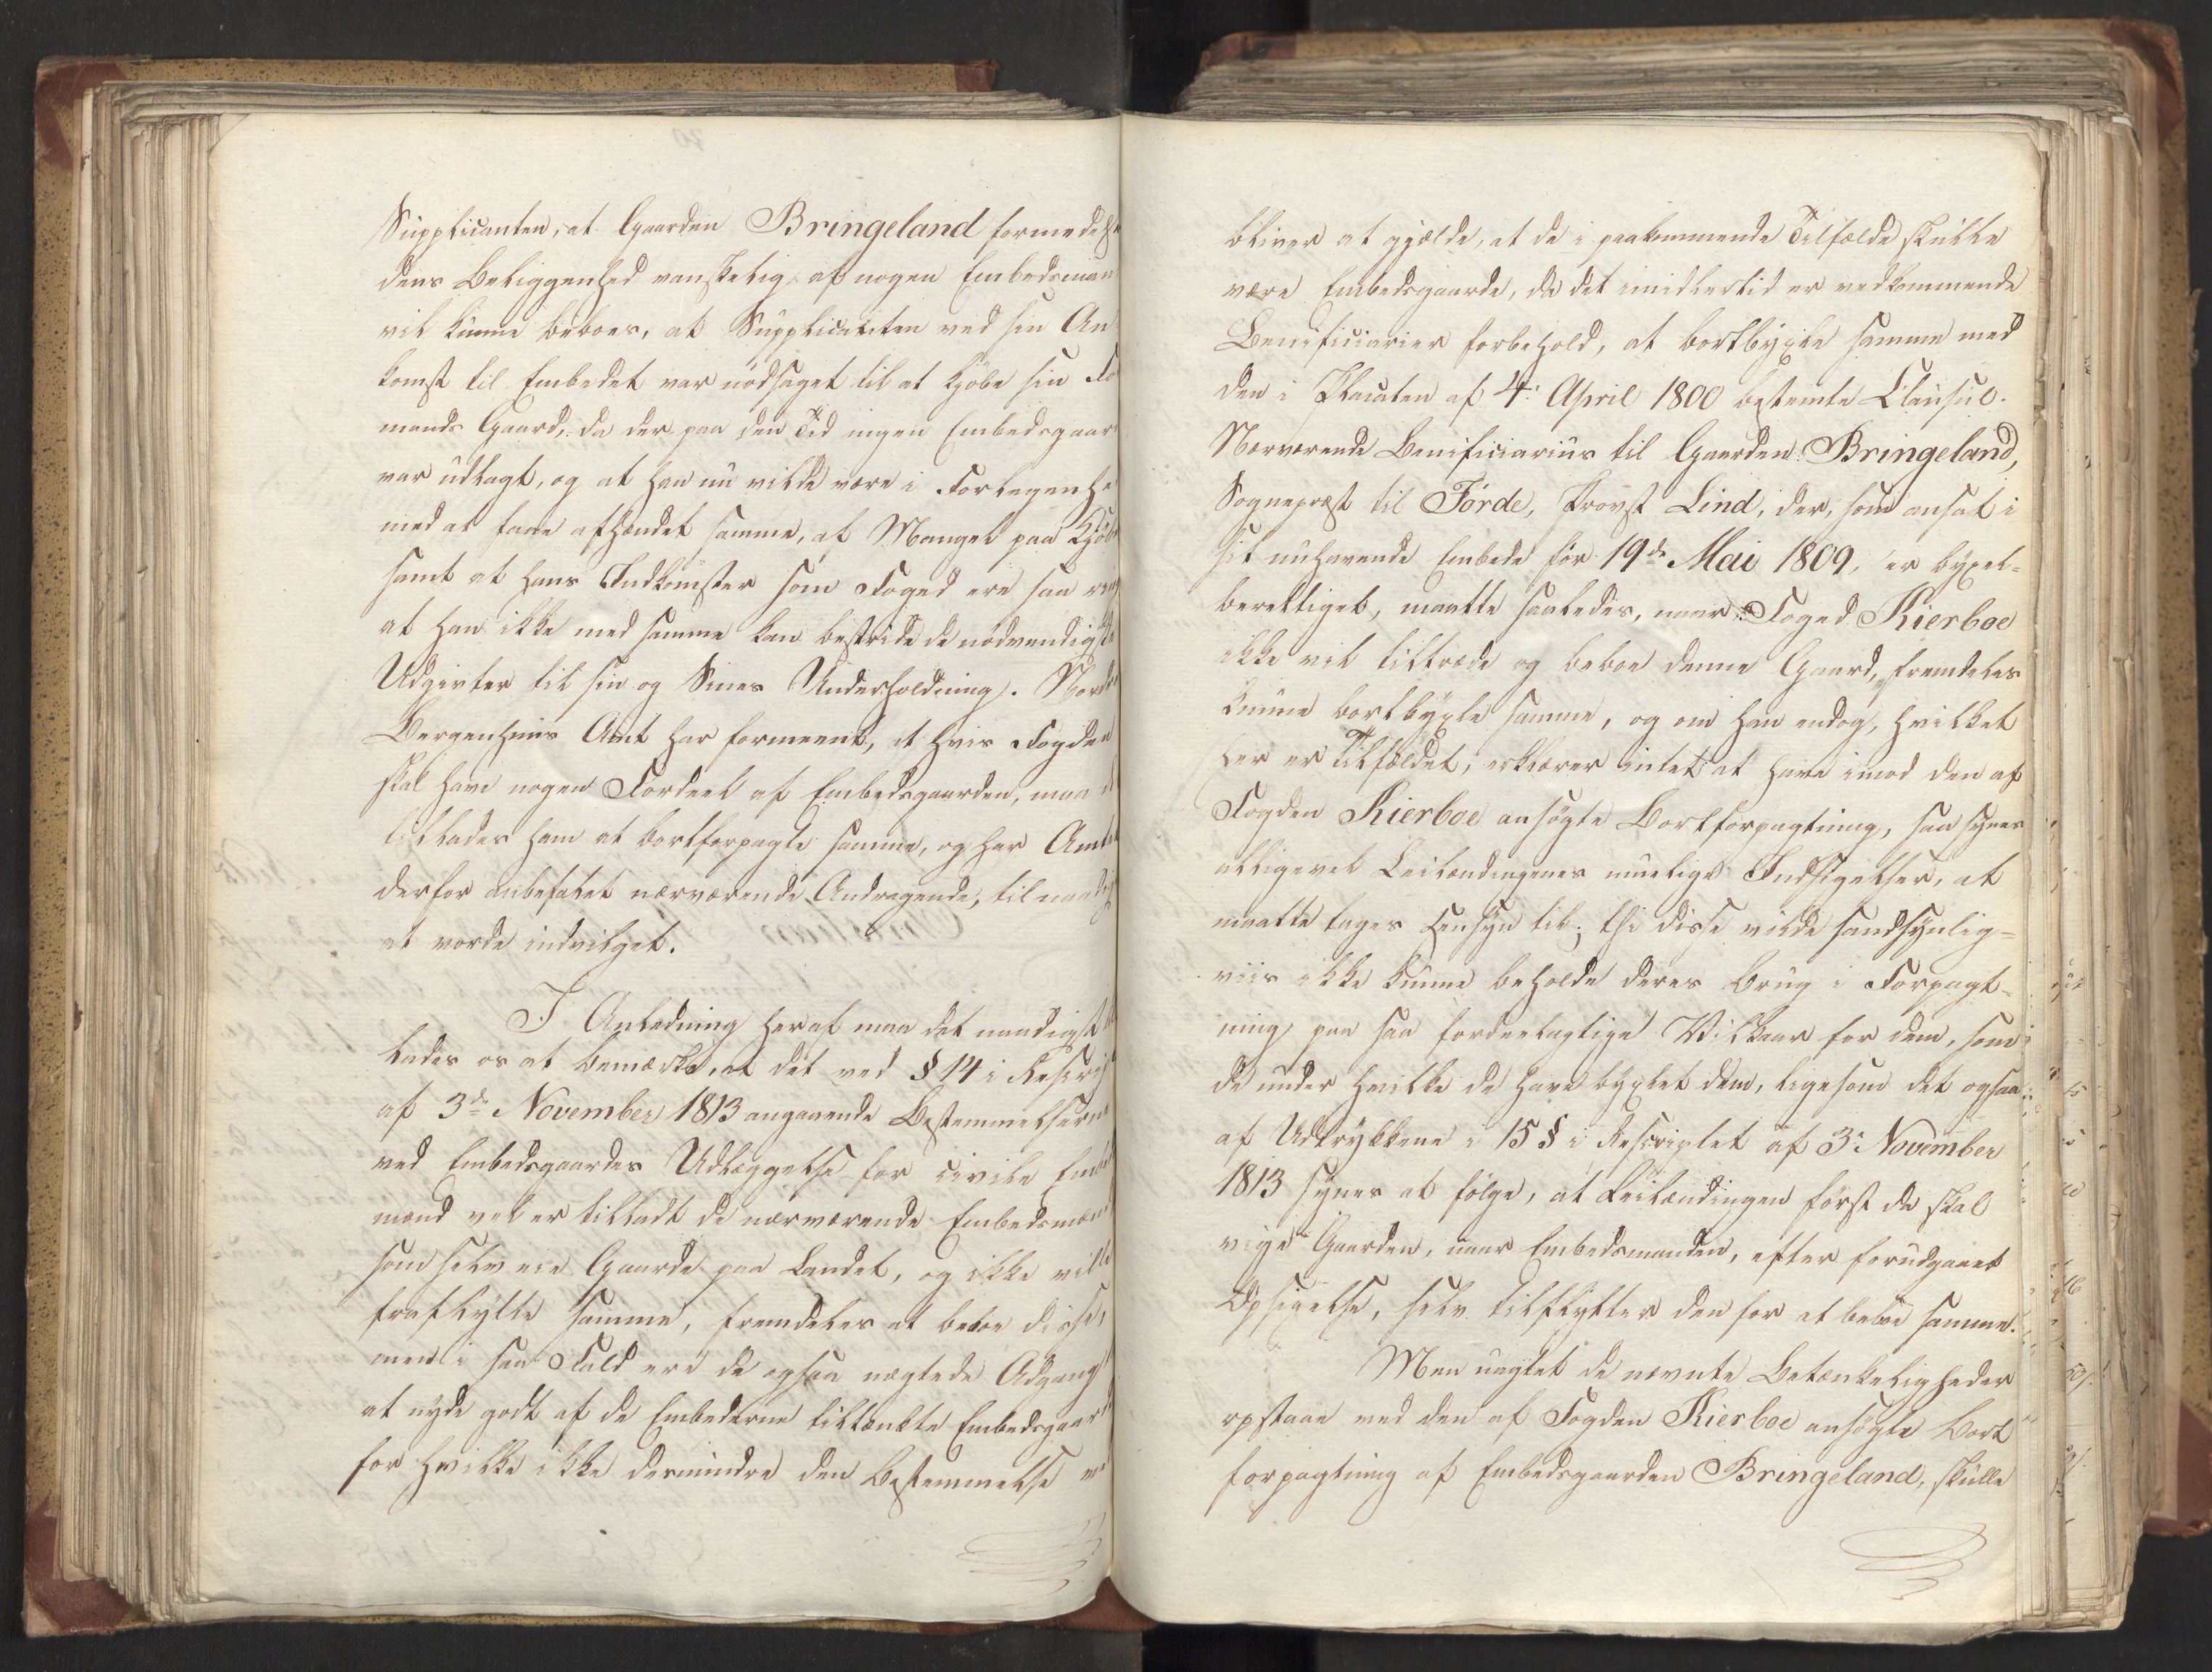 Supplicanten, at Gaarden Bringeland formedelst
dens Beliggenhed vanskelig af nogen Embedsmand
vil kunne beboes, at Supplicanten ved sin An-
komst til Embedet var nödsaget til at kjöbe sin For
mands Gaard, da der paa den Tid ingen Embedsgaard
var udlagt, og at han nu vilde være i Forlegenhed
med at faae afhændet samme, af Mangel paa Kjöber
samt at hans Indkomster som Foged ere saa ringe
at han ikke med samme kan bestride de nödvendigste
Udgivter til sin og Sines Underholdning. Nordre
Bergenhuus Amt har formeent, at hvis Fogden
skal have nogen Fordeel af Embedsgaarden, maa det
tillades ham at bortforpagte samme, og har Amtet
derfor anbefalet nærværende Andragende, til naadigst
at vorde indvilget.
I Anledning heraf maa det naadigst til
lades os at bemærke, at det ved § 14 i Rescript
af 3de November 1813 angaaende Bestemmelserne
ved Embedsgaardes Udlæggelse for civile Embeds
mænd vel er tilladt de nærværende Embedsmænd
som selv eie Gaarde paa Landet, og ikke ville
fraflytte samme, fremdeles at beboe disse,
men i saa Fald ere de ogsaa nægtede Adgang
at nyde godt af de Embederne tiltænkte Embedsgaarde
for hvilke ikke desmindre den Bestemmelse
bliver at gjælde, at de i paakommende Tilfælde skulle
være Embedsgaarde, da det imidlertid er vedkommende
Benificiarier forbehold, at bortbygle samme med
den i Placaten af 4. April 1800 bestemte Clausul.
Nærværende Benificiarius til Gaarden Bringeland,
Sognepræst til Förde, Provst Lind, der, som ansat i
sit nuhavende Embede för 19de Mai 1809, er bygsel-
berettiget, maatte saaledes, naar Foged Kierboe
ikke vil tiltræde og beboe denne Gaard, fremdeles
kunne bortbygle samme, og om han endog, hvilket
her er Tilfældet, erklærer intet at have imod den af
Fogden Kierboe ansögte Bortforpagtning, saa synes
alligevel Leilændingenes muelige Indsigelser, at
maatte tages Hensyn til; thi disse vilde sandsynlig-
viis ikke kunne beholde deres Brug i Forpagt-
ning paa saa fordeelagtige Vilkaar for dem, som
de under hvilke de have byglet dem, ligesom det ogsaa
af Udtrykkene i 15 § i Rescriptet af 3. November
1813 synes at fölge, at Leilændingen först da skal
vige Gaarden, naar Embedsmanden, efter forudgaaet
Opsigelse, selv tilflytter den for at beboe samme.
Men uagtet de nævnte Betænkeligheder
opstaae ved den af Fogden Kierboe ansögte Bort
forpagtning af Embedsgaarden Bringeland, skulle